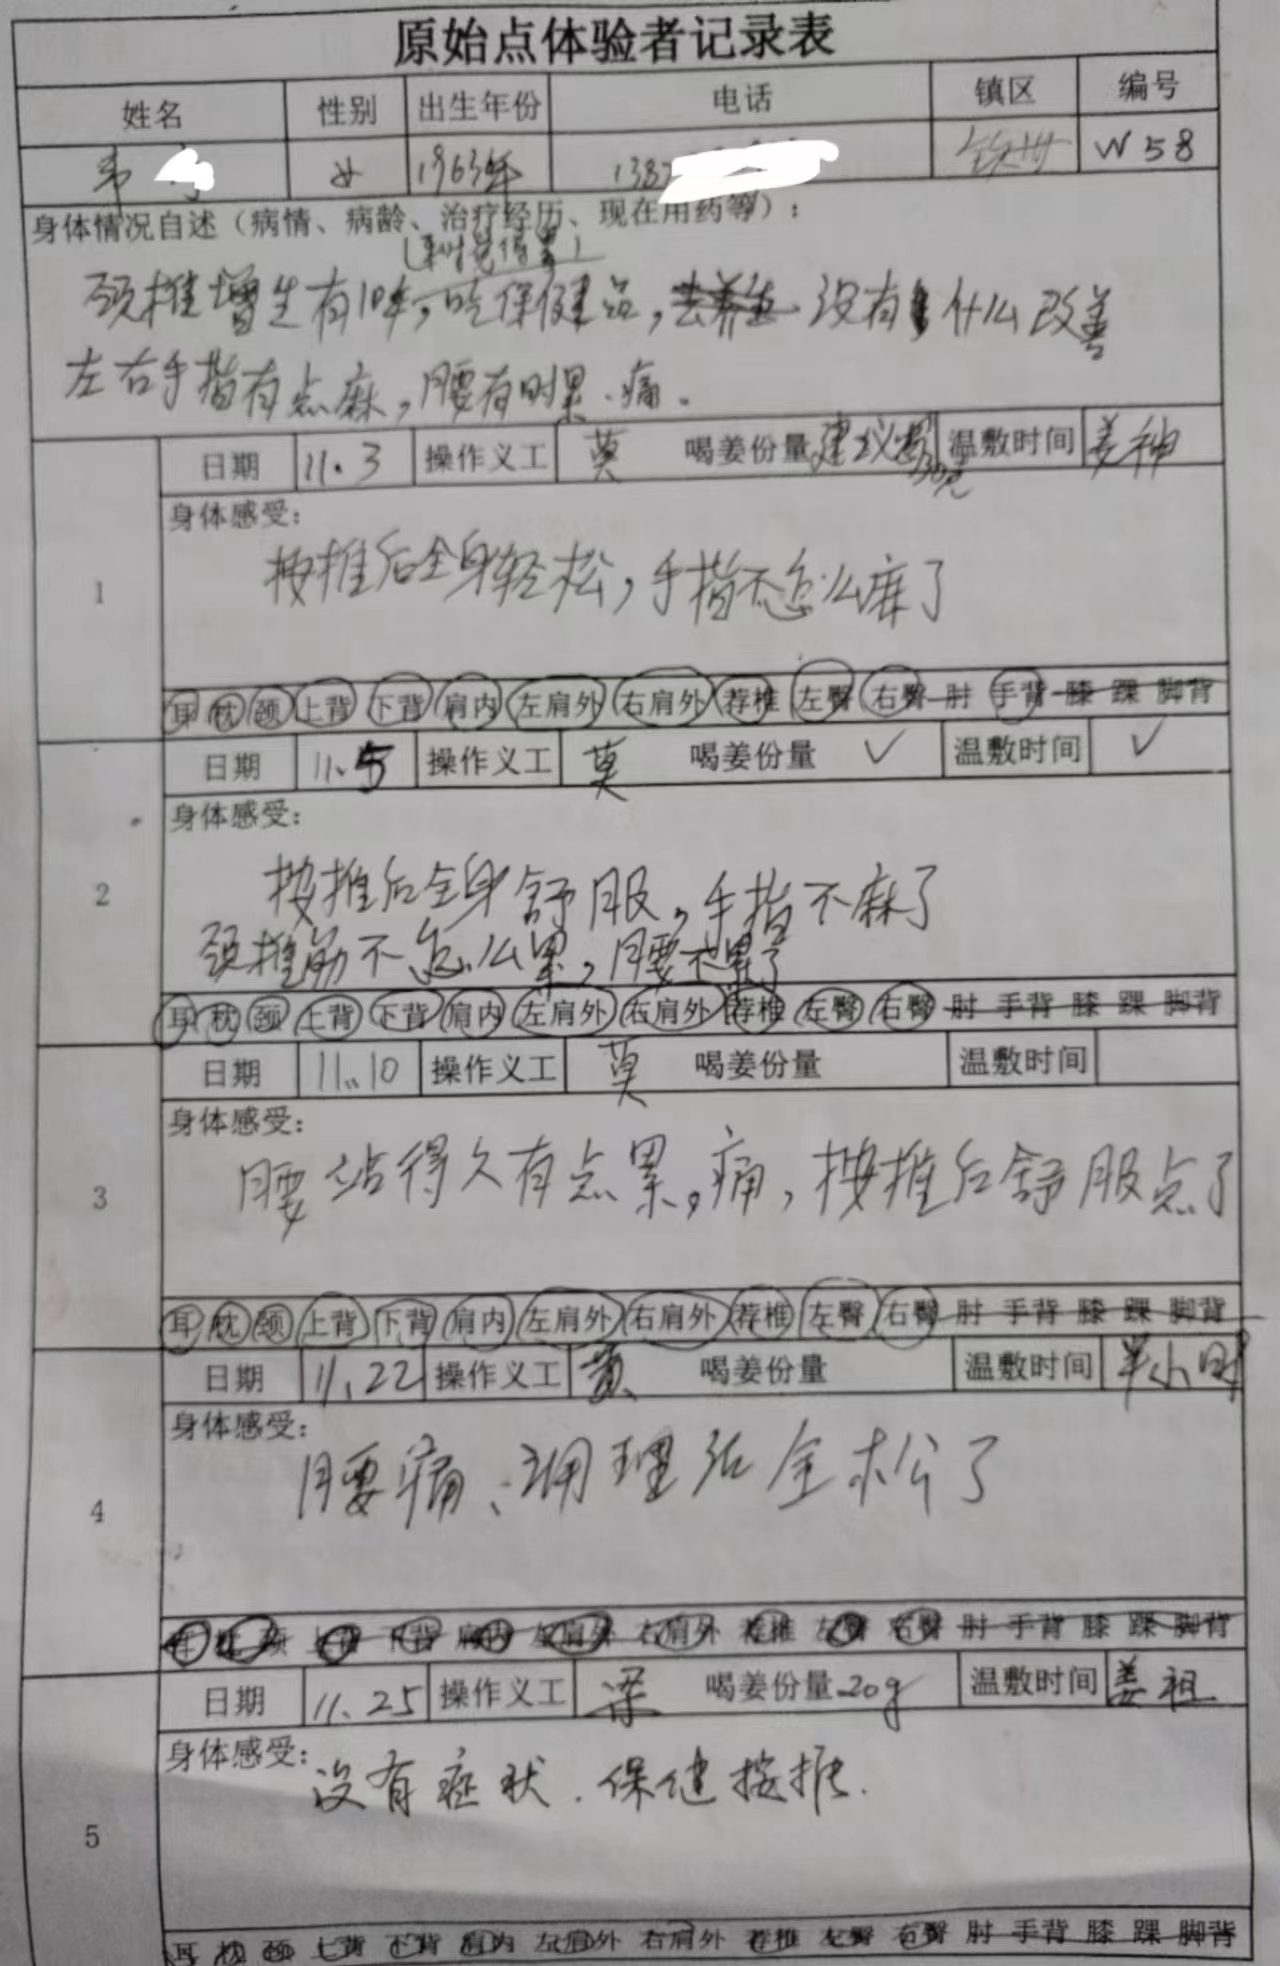 原始点体验者记录表
姓名 性别 出生年份 电话 镇区 编号
韦 女 1963年 1387 钦州 W58
身体情况自述（病情、病龄、治疗经历、现在用药等）：
颈椎增生有10年，吃保健品，没有什么改善
左右手指有点麻，腰有时累、痛。
日期 11.3 操作义工 莫 喝姜份量 建议喝 温敷时间 姜神
30克
身体感受：
1
按推后全身轻松，手指不怎么麻了
耳 枕 颈 上背 下背 肩内 左肩外 右肩外 荐椎 左臀 右臀 肘 手背 膝 踝 脚背
日期 11.5 操作义工 莫 喝姜份量 ✓ 温敷时间 ✓
身体感受：
2
按推后全身舒服，手指不麻了
颈椎筋不怎么累，腰不累了
耳 枕 颈 上背 下背 肩内 左肩外 右肩外 荐椎 左臀 右臀 肘 手背 膝 踝 脚背
日期 11.10 操作义工 莫 喝姜份量 温敷时间
身体感受：
3
腰站得久有点累，痛，按推后舒服点了
耳 枕 颈 上背 下背 肩内 左肩外 右肩外 荐椎 左臀 右臀 肘 手背 膝 踝 脚背
日期 11.22 操作义工 黄 喝姜份量 温敷时间 半小时
身体感受：
4
腰痛、调理后全松了
耳 枕 颈 上背 下背 肩内 左肩外 右肩外 荐椎 左臀 右臀 肘 手背 膝 踝 脚背
日期 11.25 操作义工 梁 喝姜份量 20g 温敷时间 姜祖
身体感受：
没有症状．保健按推．
5
耳 枕 颈 上背 下背 肩内 左肩外 右肩外 荐椎 左臀 右臀 肘 手背 膝 踝 脚背